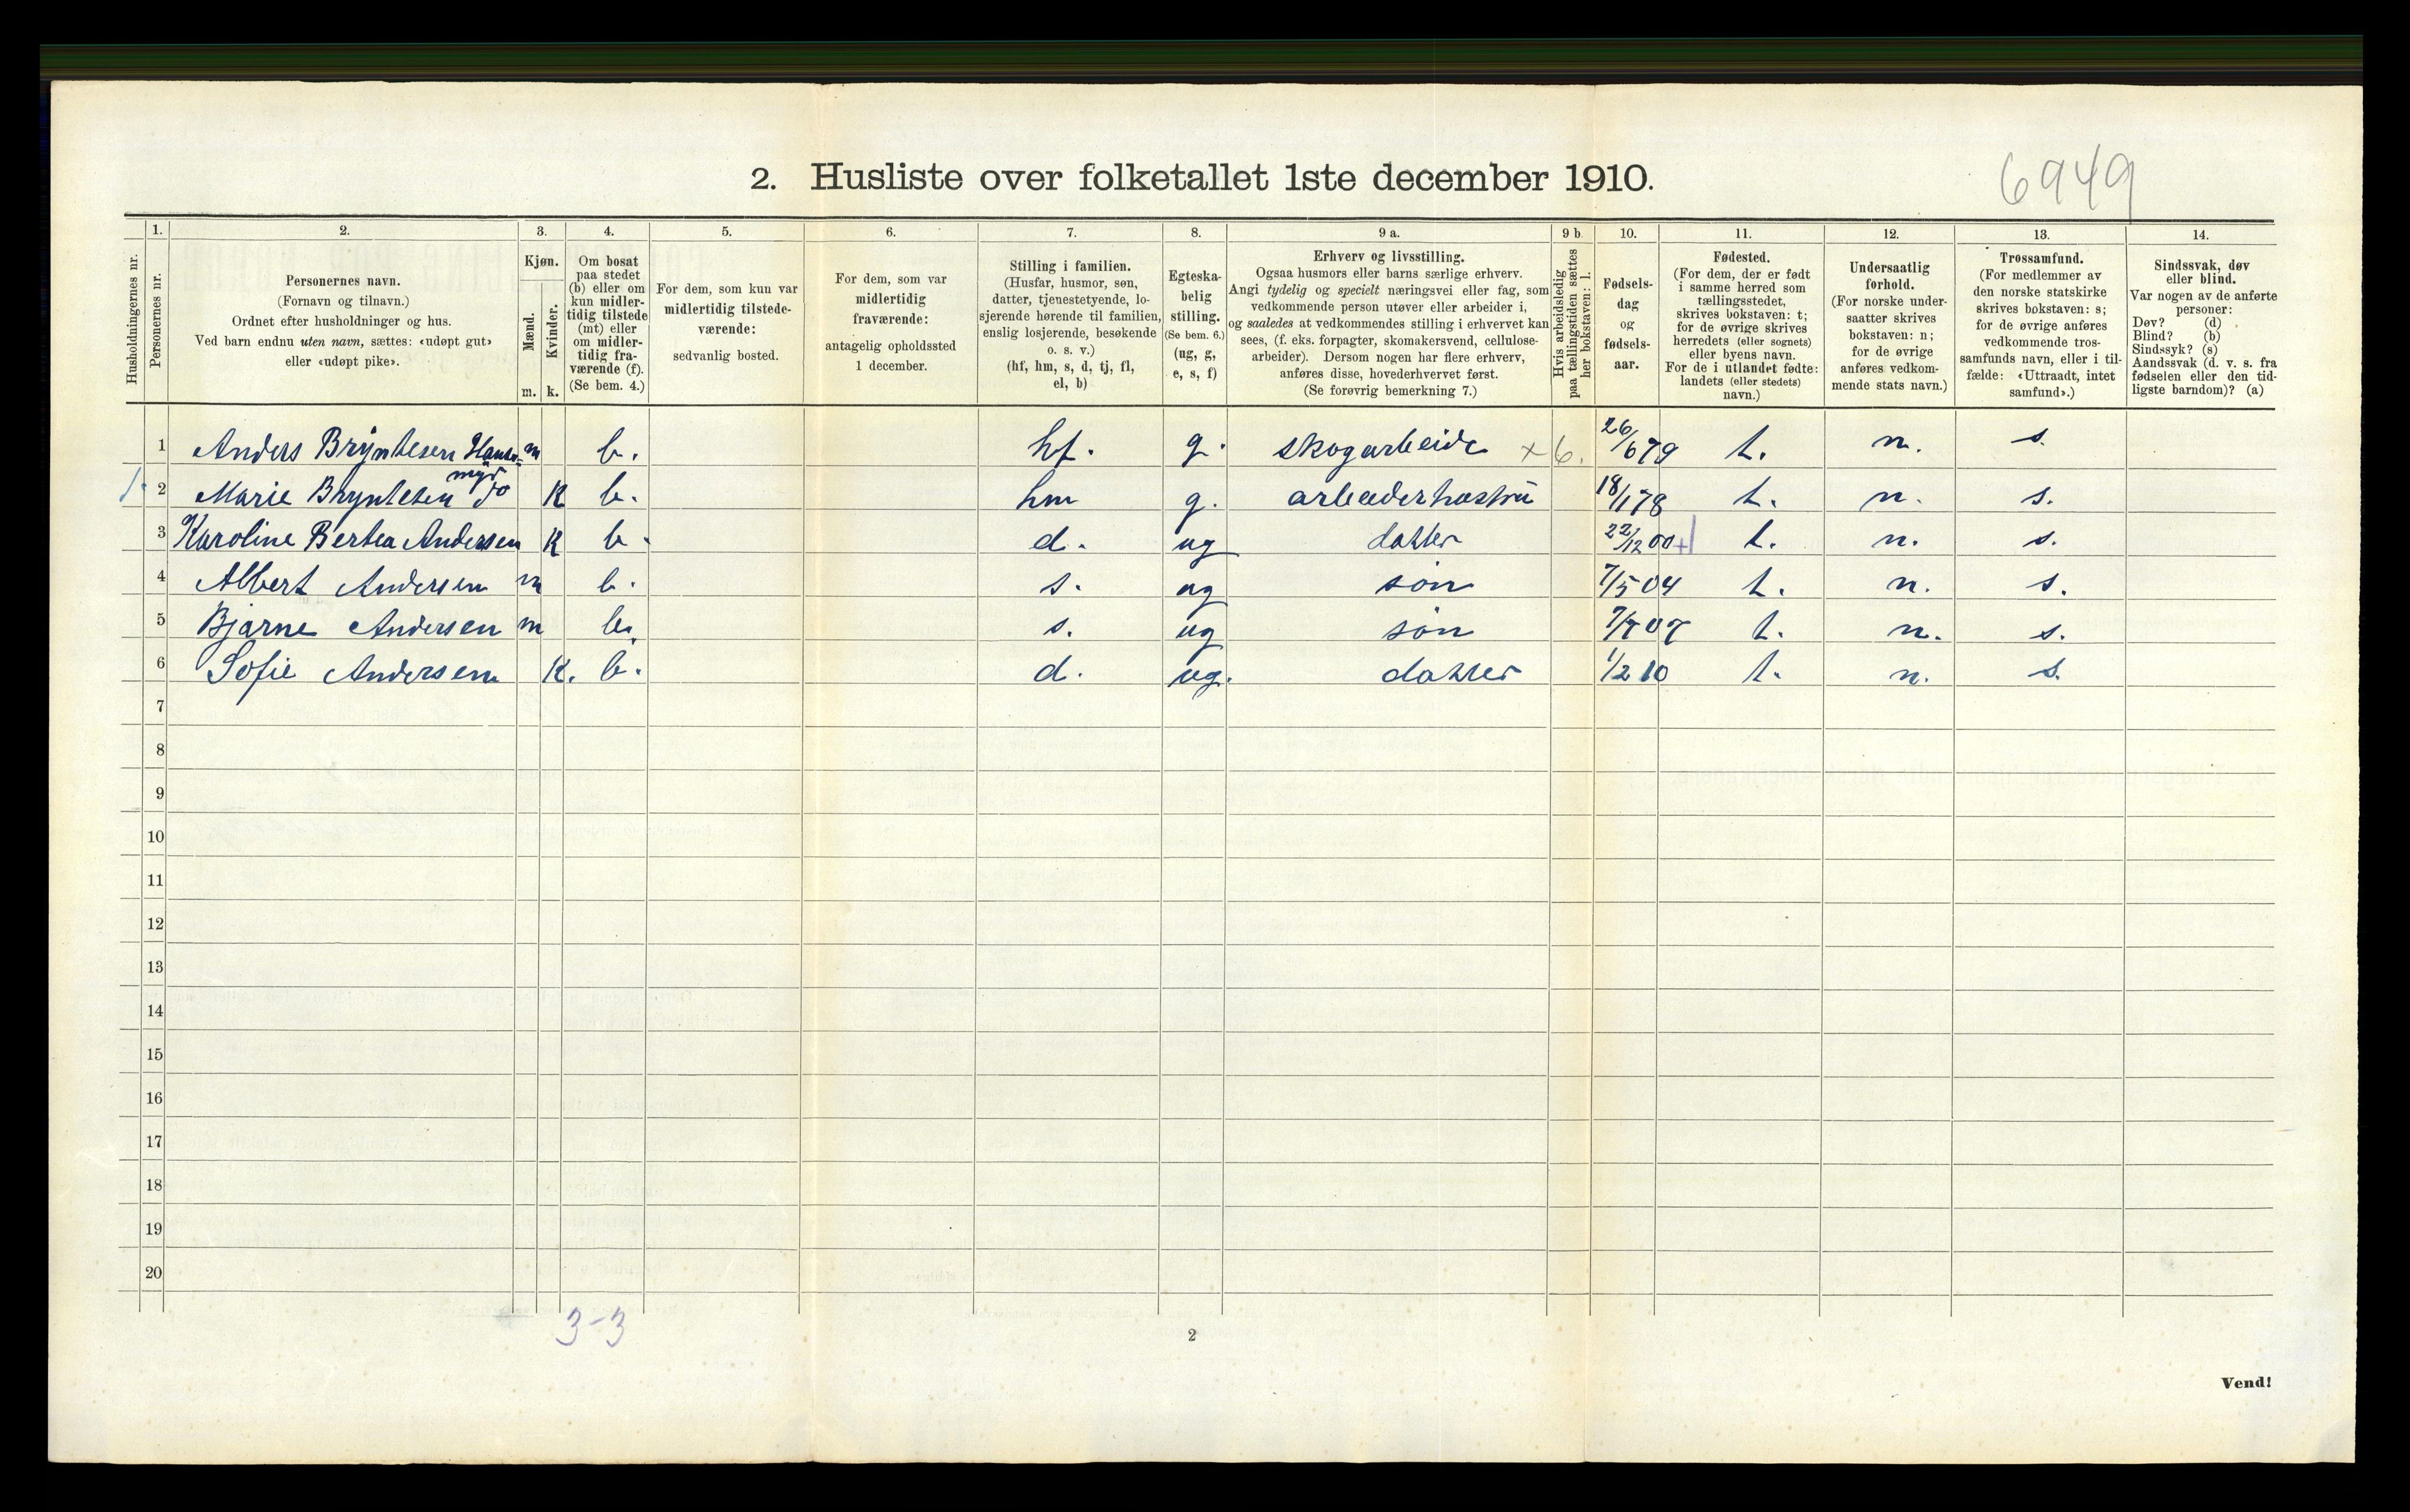 2. Husliste over folketallet 1ste december 1910.
6949
Husholdningernes nr.
1.
Personernes nr.
2.
Personernes navn.
(Fornavn og tilnavn.)
Ordnet efter husholdninger og hus.
Ved barn endnu uten navn, sættes: «udøpt gut»
eller «udøpt pike».
3.
Kjøn.
Mænd.
Kvinder.
m. k.
4.
Om bosat
paa stedet
(b) eller om
kun midler-
tidig tilstede
(mt) eller
om midler-
tidig fra-
værende (f).
(Se bem. 4.)
5.
For dem, som kun var
midlertidig tilstede-
værende:
sedvanlig bosted.
6.
For dem, som var
midlertidig
fraværende:
antagelig opholdssted
1 december.
7.
Stilling i familien.
(Husfar, husmor, søn,
datter, tjenestetyende, lo-
sjerende hørende til familien,
enslig losjerende, besøkende
o. s. v.)
(hf, hm, s, d, tj, fl,
el, b)
8.
Egteska-
belig
stilling.
(Se bem. 6.)
(ug, g,
e, s, f)
9 a.
Erhverv og livsstilling.
Ogsaa husmors eller barns særlige erhverv.
Angi tydelig og specielt næringsvei eller fag, som
vedkommende person utøver eller arbeider i,
og saaledes at vedkommendes stilling i erhvervet kan
sees, (f. eks. forpagter, skomakersvend, cellulose-
arbeider). Dersom nogen har flere erhverv,
anføres disse, hovederhvervet først.
(Se forøvrig bemerkning 7.)
9 b
Hvis arbeidsledig
paa tællingstiden sættes
her bokstaven: l.
10.
Fødsels-
dag
og
fødsels-
aar.
11.
Fødested.
(For dem, der er født
i samme herred som
tællingsstedet,
skrives bokstaven: t;
for de øvrige skrives
herredets (eller sognets)
eller byens navn.
For de i utlandet fødte:
landets (eller stedets)
navn.)
12.
Undersaatlig
forhold.
(For norske under-
saatter skrives
bokstaven: n;
for de øvrige
anføres vedkom-
mende stats navn.)
13.
Trossamfund.
(For medlemmer av
den norske statskirke
skrives bokstaven: s;
for de øvrige anføres
vedkommende tros-
samfunds navn, eller i til-
fælde: «Uttraadt, intet
samfund».)
14.
Sindssvak, døv
eller blind.
Var nogen av de anførte
personer:
Døv? (d)
Blind? (b)
Sindssyk? (s)
Aandssvak (d. v. s. fra
fødselen eller den tid-
ligste barndom)? (a)
1 Anders Bryntesen m b. hf. g. skogarbeide x 6. 26/6 79 t. n. s.
1. 2 Marie Bryntesen do K b. hm g. arbeiderhustru 18/1 78 t. n. s.
3 Karoline Bertea Andersen K b. d. ug datter 22/12 00 + t. n. s.
4 Albert Andersen m b. s. ug søn 7/5 04 t. n. s.
5 Bjarne Andersen m b. s. ug søn 7/7 07 t. n. s.
6 Sofie Andersen K. b. d. ug. datter 1/2 10 t. n. s.
7
8
9
10
11
12
13
14
15
16
17
18
19
20
3-3
2
Vend!